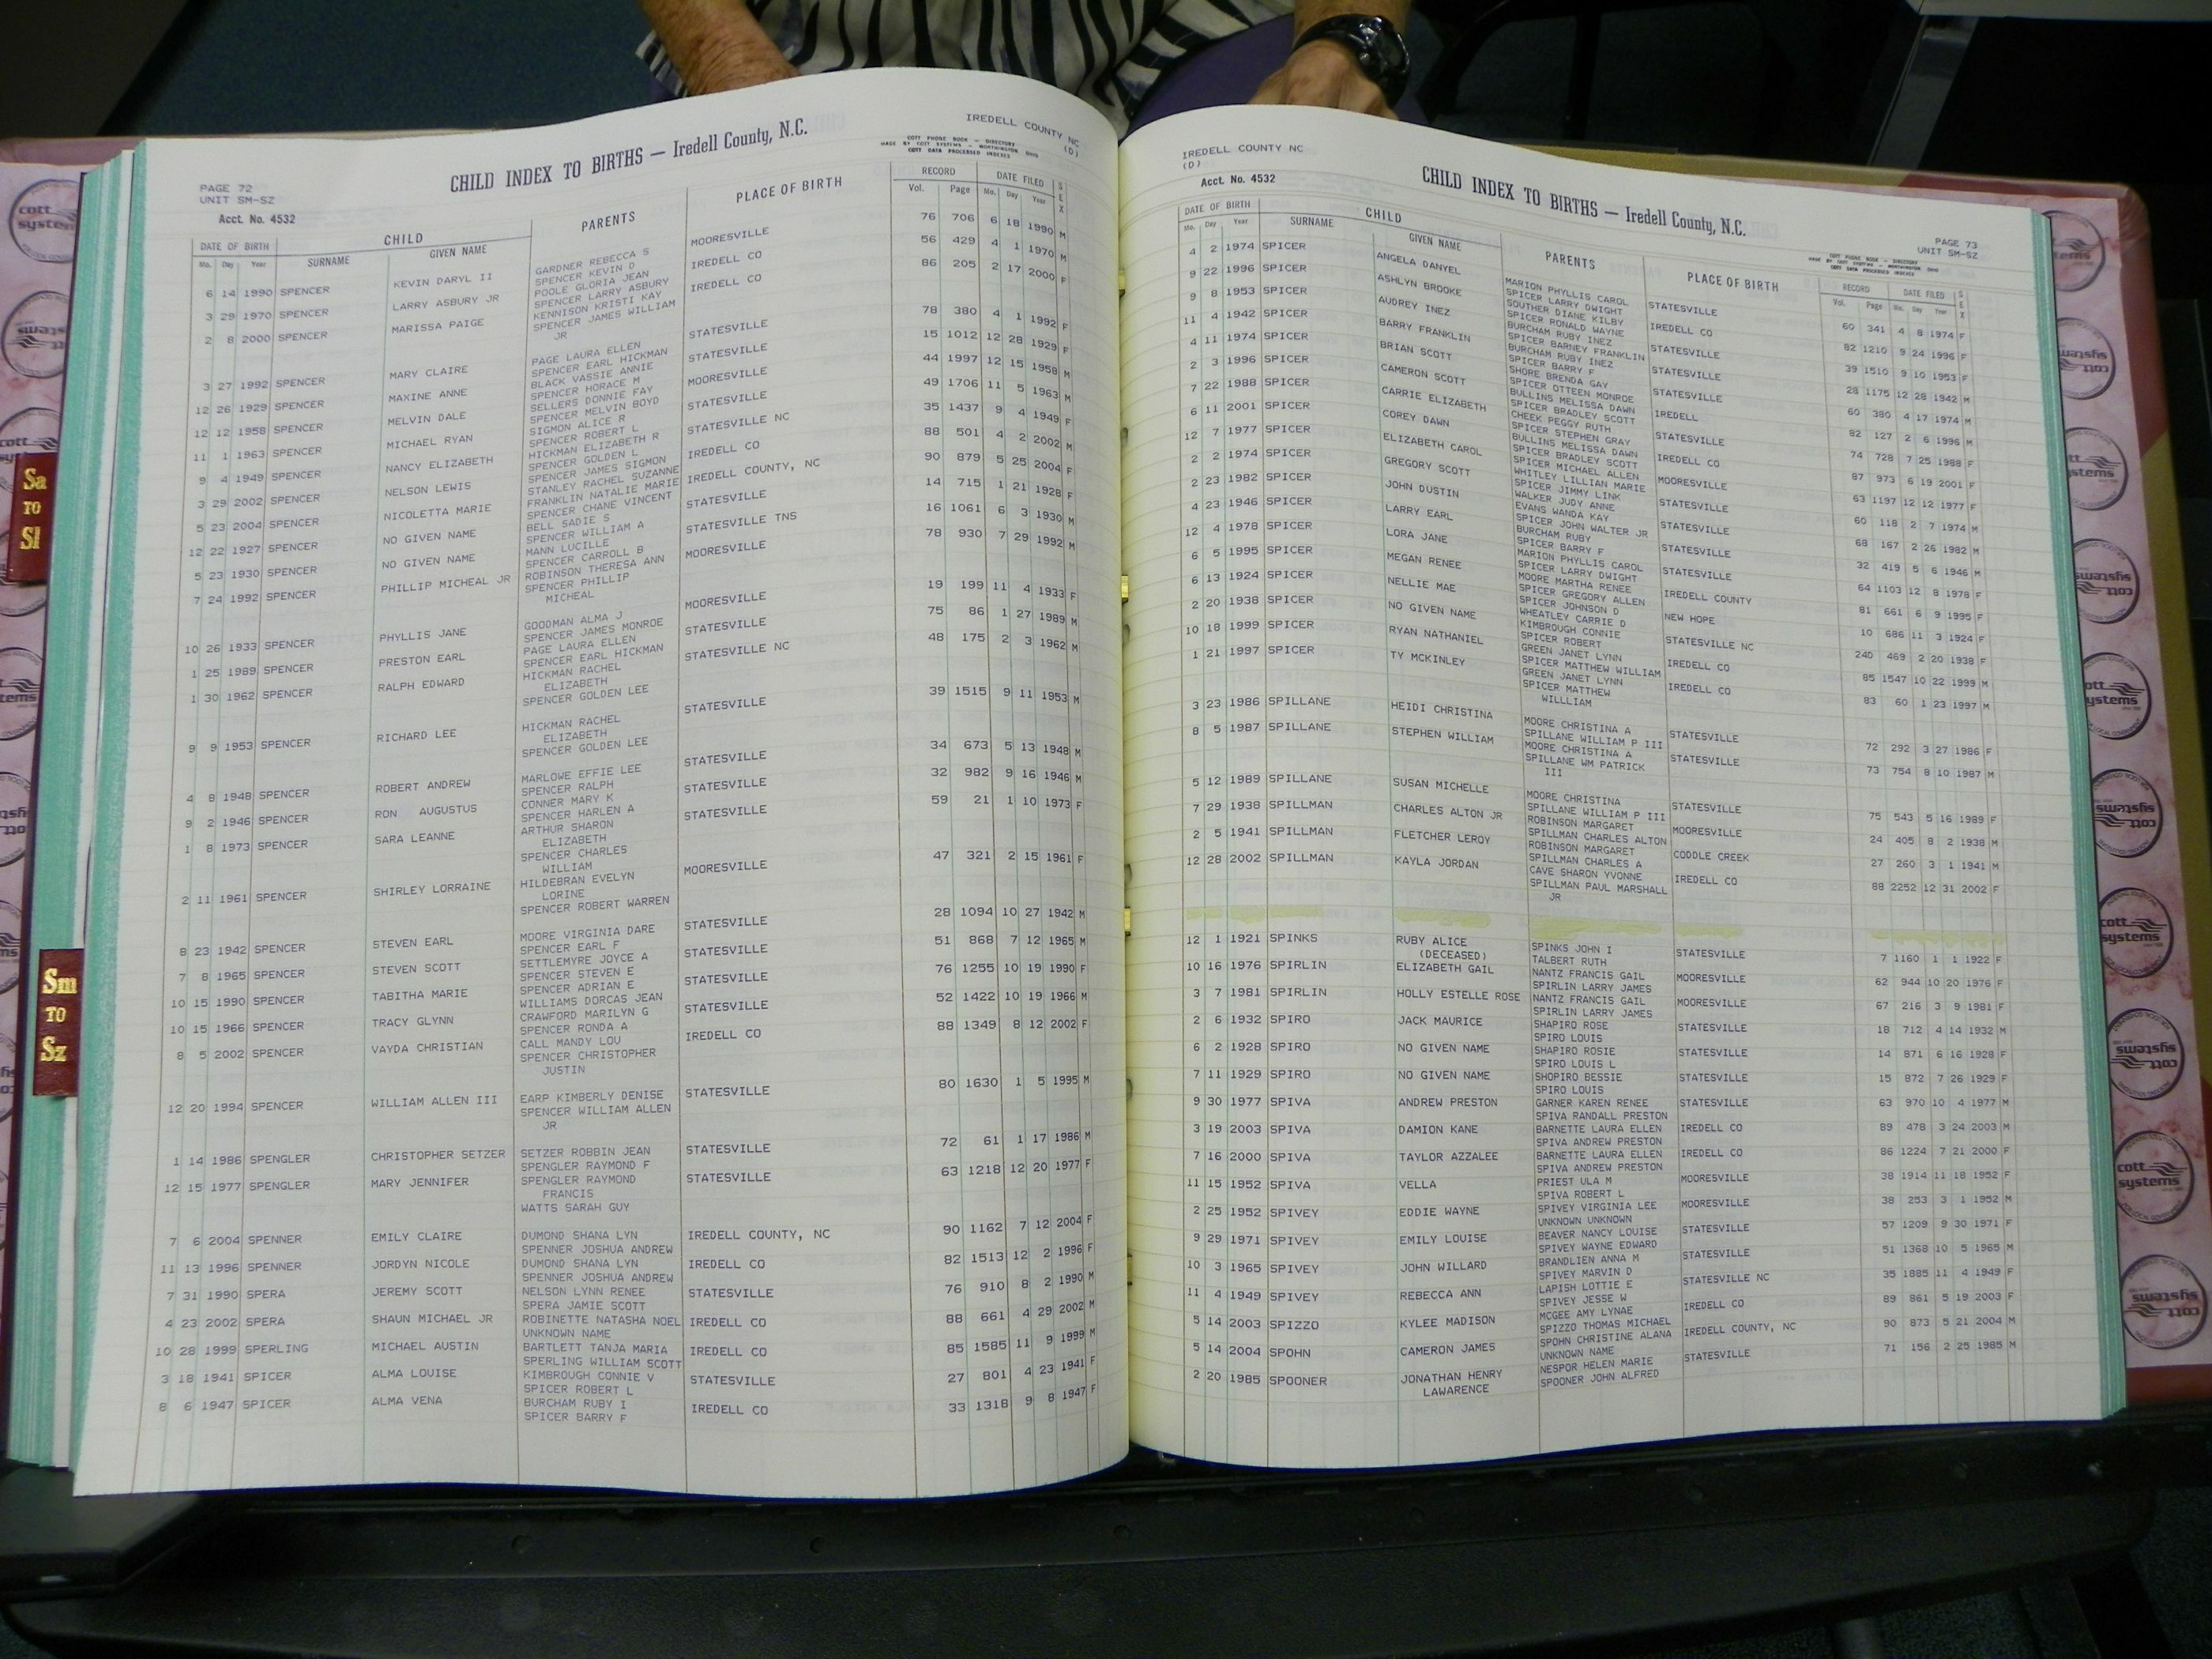 PAGE 72
UNIT SM-SZ
Acct. No. 4532
CHILD INDEX TO BIRTHS — Iredell County, N.C.
COTT PHONE BOOK - DIRECTORY
MADE BY COTT SYSTEMS - WORTHINGTON OHIO
COTT DATA PROCESSED INDEXES
IREDELL COUNTY NC
(D)
DATE OF BIRTH CHILD PARENTS PLACE OF BIRTH RECORD DATE FILED SEX
Mo. Day Year SURNAME GIVEN NAME Vol. Page Mo. Day Year
6 14 1990 SPENCER KEVIN DARYL II GARDNER REBECCA S MOORESVILLE 76 706 6 18 1990 M
SPENCER KEVIN D
3 29 1970 SPENCER LARRY ASBURY JR POOLE GLORIA JEAN IREDELL CO 56 429 4 1 1970 M
SPENCER LARRY ASBURY
2 8 2000 SPENCER MARISSA PAIGE KENNISON KRISTI KAY IREDELL CO 86 205 2 17 2000 F
SPENCER JAMES WILLIAM
JR
3 27 1992 SPENCER MARY CLAIRE PAGE LAURA ELLEN STATESVILLE 78 380 4 1 1992 F
SPENCER EARL HICKMAN
12 26 1929 SPENCER MAXINE ANNE BLACK VASSIE ANNIE STATESVILLE 15 1012 12 28 1929 F
SPENCER HORACE M
12 12 1958 SPENCER MELVIN DALE SELLERS DONNIE FAY MOORESVILLE 44 1997 12 15 1958 M
SPENCER MELVIN BOYD
11 1 1963 SPENCER MICHAEL RYAN SIGMON ALICE R STATESVILLE 49 1706 11 5 1963 M
SPENCER ROBERT L
9 4 1949 SPENCER NANCY ELIZABETH HICKMAN ELIZABETH R STATESVILLE NC 35 1437 9 4 1949 F
SPENCER GOLDEN L
3 29 2002 SPENCER NELSON LEWIS SPENCER JAMES SIGMON IREDELL CO 88 501 4 2 2002 M
STANLEY RACHEL SUZANNE
5 23 2004 SPENCER NICOLETTA MARIE FRANKLIN NATALIE MARIE IREDELL COUNTY, NC 90 879 5 25 2004 F
SPENCER CHANE VINCENT
12 22 1927 SPENCER NO GIVEN NAME BELL SADIE S STATESVILLE 14 715 1 21 1928 F
SPENCER WILLIAM A
5 23 1930 SPENCER NO GIVEN NAME MANN LUCILLE STATESVILLE TNS 16 1061 6 3 1930 M
SPENCER CARROLL B
7 24 1992 SPENCER PHILLIP MICHEAL JR ROBINSON THERESA ANN MOORESVILLE 78 930 7 29 1992 M
SPENCER PHILLIP
MICHEAL
10 26 1933 SPENCER PHYLLIS JANE GOODMAN ALMA J MOORESVILLE 19 199 11 4 1933 F
SPENCER JAMES MONROE
1 25 1989 SPENCER PRESTON EARL PAGE LAURA ELLEN STATESVILLE 75 86 1 27 1989 M
SPENCER EARL HICKMAN
1 30 1962 SPENCER RALPH EDWARD HICKMAN RACHEL STATESVILLE NC 48 175 2 3 1962 M
ELIZABETH
SPENCER GOLDEN LEE
9 9 1953 SPENCER RICHARD LEE HICKMAN RACHEL STATESVILLE 39 1515 9 11 1953 M
ELIZABETH
SPENCER GOLDEN LEE
4 8 1948 SPENCER ROBERT ANDREW MARLOWE EFFIE LEE STATESVILLE 34 673 5 13 1948 M
SPENCER RALPH
9 2 1946 SPENCER RON AUGUSTUS CONNER MARY K STATESVILLE 32 982 9 16 1946 M
SPENCER HARLEN A
1 8 1973 SPENCER SARA LEANNE ARTHUR SHARON STATESVILLE 59 21 1 10 1973 F
ELIZABETH
SPENCER CHARLES
WILLIAM
2 11 1961 SPENCER SHIRLEY LORRAINE HILDEBRAN EVELYN MOORESVILLE 47 321 2 15 1961 F
LORINE
SPENCER ROBERT WARREN
8 23 1942 SPENCER STEVEN EARL MOORE VIRGINIA DARE STATESVILLE 28 1094 10 27 1942 M
SPENCER EARL F
7 8 1965 SPENCER STEVEN SCOTT SETTLEMYRE JOYCE A STATESVILLE 51 868 7 12 1965 M
SPENCER STEVEN E
10 15 1990 SPENCER TABITHA MARIE SPENCER ADRIAN E STATESVILLE 76 1255 10 19 1990 F
WILLIAMS DORCAS JEAN
10 15 1966 SPENCER TRACY GLYNN CRAWFORD MARILYN G STATESVILLE 52 1422 10 19 1966 M
SPENCER RONDA A
8 5 2002 SPENCER VAYDA CHRISTIAN CALL MANDY LOU IREDELL CO 88 1349 8 12 2002 F
SPENCER CHRISTOPHER
JUSTIN
12 20 1994 SPENCER WILLIAM ALLEN III EARP KIMBERLY DENISE STATESVILLE 80 1630 1 5 1995 M
SPENCER WILLIAM ALLEN
JR
1 14 1986 SPENGLER CHRISTOPHER SETZER SETZER ROBBIN JEAN STATESVILLE 72 61 1 17 1986 M
SPENGLER RAYMOND F
12 15 1977 SPENGLER MARY JENNIFER SPENGLER RAYMOND STATESVILLE 63 1218 12 20 1977 F
FRANCIS
WATTS SARAH GUY
7 6 2004 SPENNER EMILY CLAIRE DUMOND SHANA LYN IREDELL COUNTY, NC 90 1162 7 12 2004 F
SPENNER JOSHUA ANDREW
11 13 1996 SPENNER JORDYN NICOLE DUMOND SHANA LYN IREDELL CO 82 1513 12 2 1996 F
SPENNER JOSHUA ANDREW
7 31 1990 SPERA JEREMY SCOTT NELSON LYNN RENEE STATESVILLE 76 910 8 2 1990 M
SPERA JAMIE SCOTT
4 23 2002 SPERA SHAUN MICHAEL JR ROBINETTE NATASHA NOEL IREDELL CO 88 661 4 29 2002 M
UNKNOWN NAME
10 28 1999 SPERLING MICHAEL AUSTIN BARTLETT TANJA MARIA IREDELL CO 85 1585 11 9 1999 M
SPERLING WILLIAM SCOTT
3 18 1941 SPICER ALMA LOUISE KIMBROUGH CONNIE V STATESVILLE 27 801 4 23 1941 F
SPICER ROBERT L
8 6 1947 SPICER ALMA VENA BURCHAM RUBY I IREDELL CO 33 1318 9 8 1947 F
SPICER BARRY F
IREDELL COUNTY NC
(D)
Acct. No. 4532
CHILD INDEX TO BIRTHS — Iredell County, N.C.
PAGE 73
UNIT SM-SZ
COTT PHONE BOOK - DIRECTORY
MADE BY COTT SYSTEMS - WORTHINGTON OHIO
COTT DATA PROCESSED INDEXES
DATE OF BIRTH CHILD PARENTS PLACE OF BIRTH RECORD DATE FILED SEX
Mo. Day Year SURNAME GIVEN NAME Vol. Page Mo. Day Year
4 2 1974 SPICER ANGELA DANYEL MARION PHYLLIS CAROL STATESVILLE 60 341 4 8 1974 F
SPICER LARRY DWIGHT
9 22 1996 SPICER ASHLYN BROOKE SOUTHER DIANE KILBY IREDELL CO 82 1210 9 24 1996 F
SPICER RONALD WAYNE
9 8 1953 SPICER AUDREY INEZ BURCHAM RUBY INEZ STATESVILLE 39 1510 9 10 1953 F
SPICER BARNEY FRANKLIN
11 4 1942 SPICER BARRY FRANKLIN BURCHAM RUBY INEZ STATESVILLE 28 1175 12 28 1942 M
SPICER BARRY F
4 11 1974 SPICER BRIAN SCOTT SHORE BRENDA GAY IREDELL 60 380 4 17 1974 M
SPICER OTTEEN MONROE
2 3 1996 SPICER CAMERON SCOTT BULLINS MELISSA DAWN STATESVILLE 82 127 2 6 1996 M
SPICER BRADLEY SCOTT
7 22 1988 SPICER CARRIE ELIZABETH CHEEK PEGGY RUTH IREDELL CO 74 728 7 25 1988 F
SPICER STEPHEN GRAY
6 11 2001 SPICER COREY DAWN BULLINS MELISSA DAWN MOORESVILLE 87 973 6 19 2001 F
SPICER BRADLEY SCOTT
12 7 1977 SPICER ELIZABETH CAROL SPICER MICHAEL ALLEN STATESVILLE 63 1197 12 12 1977 F
WHITLEY LILLIAN MARIE
2 2 1974 SPICER GREGORY SCOTT SPICER JIMMY LINK STATESVILLE 60 118 2 7 1974 M
WALKER JUDY ANNE
2 23 1982 SPICER JOHN DUSTIN EVANS WANDA KAY STATESVILLE 68 167 2 26 1982 M
SPICER JOHN WALTER JR
4 23 1946 SPICER LARRY EARL BURCHAM RUBY STATESVILLE 32 419 5 6 1946 M
SPICER BARRY F
12 4 1978 SPICER LORA JANE MARION PHYLLIS CAROL IREDELL COUNTY 64 1103 12 8 1978 F
SPICER LARRY DWIGHT
6 5 1995 SPICER MEGAN RENEE MOORE MARTHA RENEE NEW HOPE 81 661 6 9 1995 F
SPICER GREGORY ALLEN
6 13 1924 SPICER NELLIE MAE SPICER JOHNSON D STATESVILLE NC 10 686 11 3 1924 F
WHEATLEY CARRIE D
2 20 1938 SPICER NO GIVEN NAME KIMBROUGH CONNIE IREDELL CO 240 469 2 20 1938 F
SPICER ROBERT
10 18 1999 SPICER RYAN NATHANIEL GREEN JANET LYNN IREDELL CO 85 1547 10 22 1999 M
SPICER MATTHEW WILLIAM
1 21 1997 SPICER TY MCKINLEY GREEN JANET LYNN 83 60 1 23 1997 M
SPICER MATTHEW
WILLLIAM
3 23 1986 SPILLANE HEIDI CHRISTINA MOORE CHRISTINA A STATESVILLE 72 292 3 27 1986 F
SPILLANE WILLIAM P III
8 5 1987 SPILLANE STEPHEN WILLIAM MOORE CHRISTINA A STATESVILLE 73 754 8 10 1987 M
SPILLANE WM PATRICK
III
5 12 1989 SPILLANE SUSAN MICHELLE MOORE CHRISTINA STATESVILLE 75 543 5 16 1989 F
SPILLANE WILLIAM P III
7 29 1938 SPILLMAN CHARLES ALTON JR ROBINSON MARGARET MOORESVILLE 24 405 8 2 1938 M
SPILLMAN CHARLES ALTON
2 5 1941 SPILLMAN FLETCHER LEROY ROBINSON MARGARET CODDLE CREEK 27 260 3 1 1941 M
SPILLMAN CHARLES A
12 28 2002 SPILLMAN KAYLA JORDAN CAVE SHARON YVONNE IREDELL CO 88 2252 12 31 2002 F
SPILLMAN PAUL MARSHALL
JR
12 1 1921 SPINKS RUBY ALICE SPINKS JOHN I STATESVILLE 7 1160 1 1 1922 F
(DECEASED) TALBERT RUTH
10 16 1976 SPIRLIN ELIZABETH GAIL NANTZ FRANCIS GAIL MOORESVILLE 62 944 10 20 1976 F
SPIRLIN LARRY JAMES
3 7 1981 SPIRLIN HOLLY ESTELLE ROSE NANTZ FRANCIS GAIL MOORESVILLE 67 216 3 9 1981 F
SPIRLIN LARRY JAMES
2 6 1932 SPIRO JACK MAURICE SHAPIRO ROSE STATESVILLE 18 712 4 14 1932 M
SPIRO LOUIS
6 2 1928 SPIRO NO GIVEN NAME SHAPIRO ROSIE STATESVILLE 14 871 6 16 1928 F
SPIRO LOUIS L
7 11 1929 SPIRO NO GIVEN NAME SHOPIRO BESSIE STATESVILLE 15 872 7 26 1929 F
SPIRO LOUIS
9 30 1977 SPIVA ANDREW PRESTON GARNER KAREN RENEE STATESVILLE 63 970 10 4 1977 M
SPIVA RANDALL PRESTON
3 19 2003 SPIVA DAMION KANE BARNETTE LAURA ELLEN IREDELL CO 89 478 3 24 2003 M
SPIVA ANDREW PRESTON
7 16 2000 SPIVA TAYLOR AZZALEE BARNETTE LAURA ELLEN IREDELL CO 86 1224 7 21 2000 F
SPIVA ANDREW PRESTON
11 15 1952 SPIVA VELLA PRIEST ULA M MOORESVILLE 38 1914 11 18 1952 F
SPIVA ROBERT L
2 25 1952 SPIVEY EDDIE WAYNE SPIVEY VIRGINIA LEE MOORESVILLE 38 253 3 1 1952 M
UNKNOWN UNKNOWN
9 29 1971 SPIVEY EMILY LOUISE BEAVER NANCY LOUISE STATESVILLE 57 1209 9 30 1971 F
SPIVEY WAYNE EDWARD
10 3 1965 SPIVEY JOHN WILLARD BRANDLIEN ANNA M STATESVILLE 51 1368 10 5 1965 M
SPIVEY MARVIN D
11 4 1949 SPIVEY REBECCA ANN LAPISH LOTTIE E STATESVILLE NC 35 1885 11 4 1949 F
SPIVEY JESSE W
5 14 2003 SPIZZO KYLEE MADISON MCGEE AMY LYNAE IREDELL CO 89 861 5 19 2003 F
SPIZZO THOMAS MICHAEL
5 14 2004 SPOHN CAMERON JAMES SPOHN CHRISTINE ALANA IREDELL COUNTY, NC 90 873 5 21 2004 M
UNKNOWN NAME
2 20 1985 SPOONER JONATHAN HENRY NESPOR HELEN MARIE STATESVILLE 71 156 2 25 1985 M
LAWARENCE SPOONER JOHN ALFRED
Sa
TO
Sl
Sm
TO
Sz
cott
systems